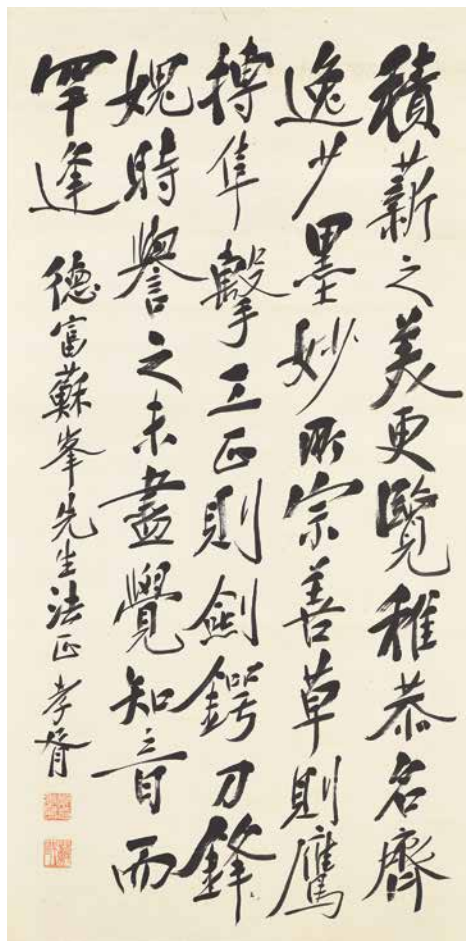 積薪之美更覽稚恭名齊
逸少墨妙所宗善草則鷹
搏隼擊工正則劍鍔刀鋒
媿時譽之未盡覺知音而
罕逢 德富蘇峯先生法正 孝胥